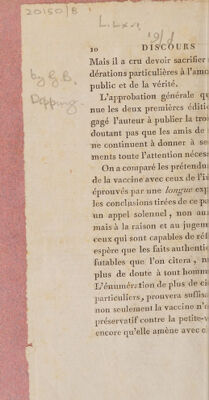 20150/B
10 DISCOURS
Mais il a cru devoir sacrifier
by G.B.
dérations particulières à l'amo
public et de la vérité.
Depping.
L'approbation générale qu
nue les deux premières éditi
gagé l'auteur à publier la troi
doutant pas que les amis de
ne continuent à donner à se
ments toute l'attention néces
On a comparé les prétendu
de la vaccine avec ceux de l'i
éprouvés par une longue exp
les conclusions tirées de ce pa
un appel solennel, non au
mais à la raison et au jugem
ceux qui sont capables de réf
espère que les faits authenti
futables que l'on citera, n
plus de doute à tout homm
L'énumération de plus de ci
particuliers, prouvera suffisa
non seulement la vaccine n'
préservatif contre la petite-v
encore qu'elle amène avec e